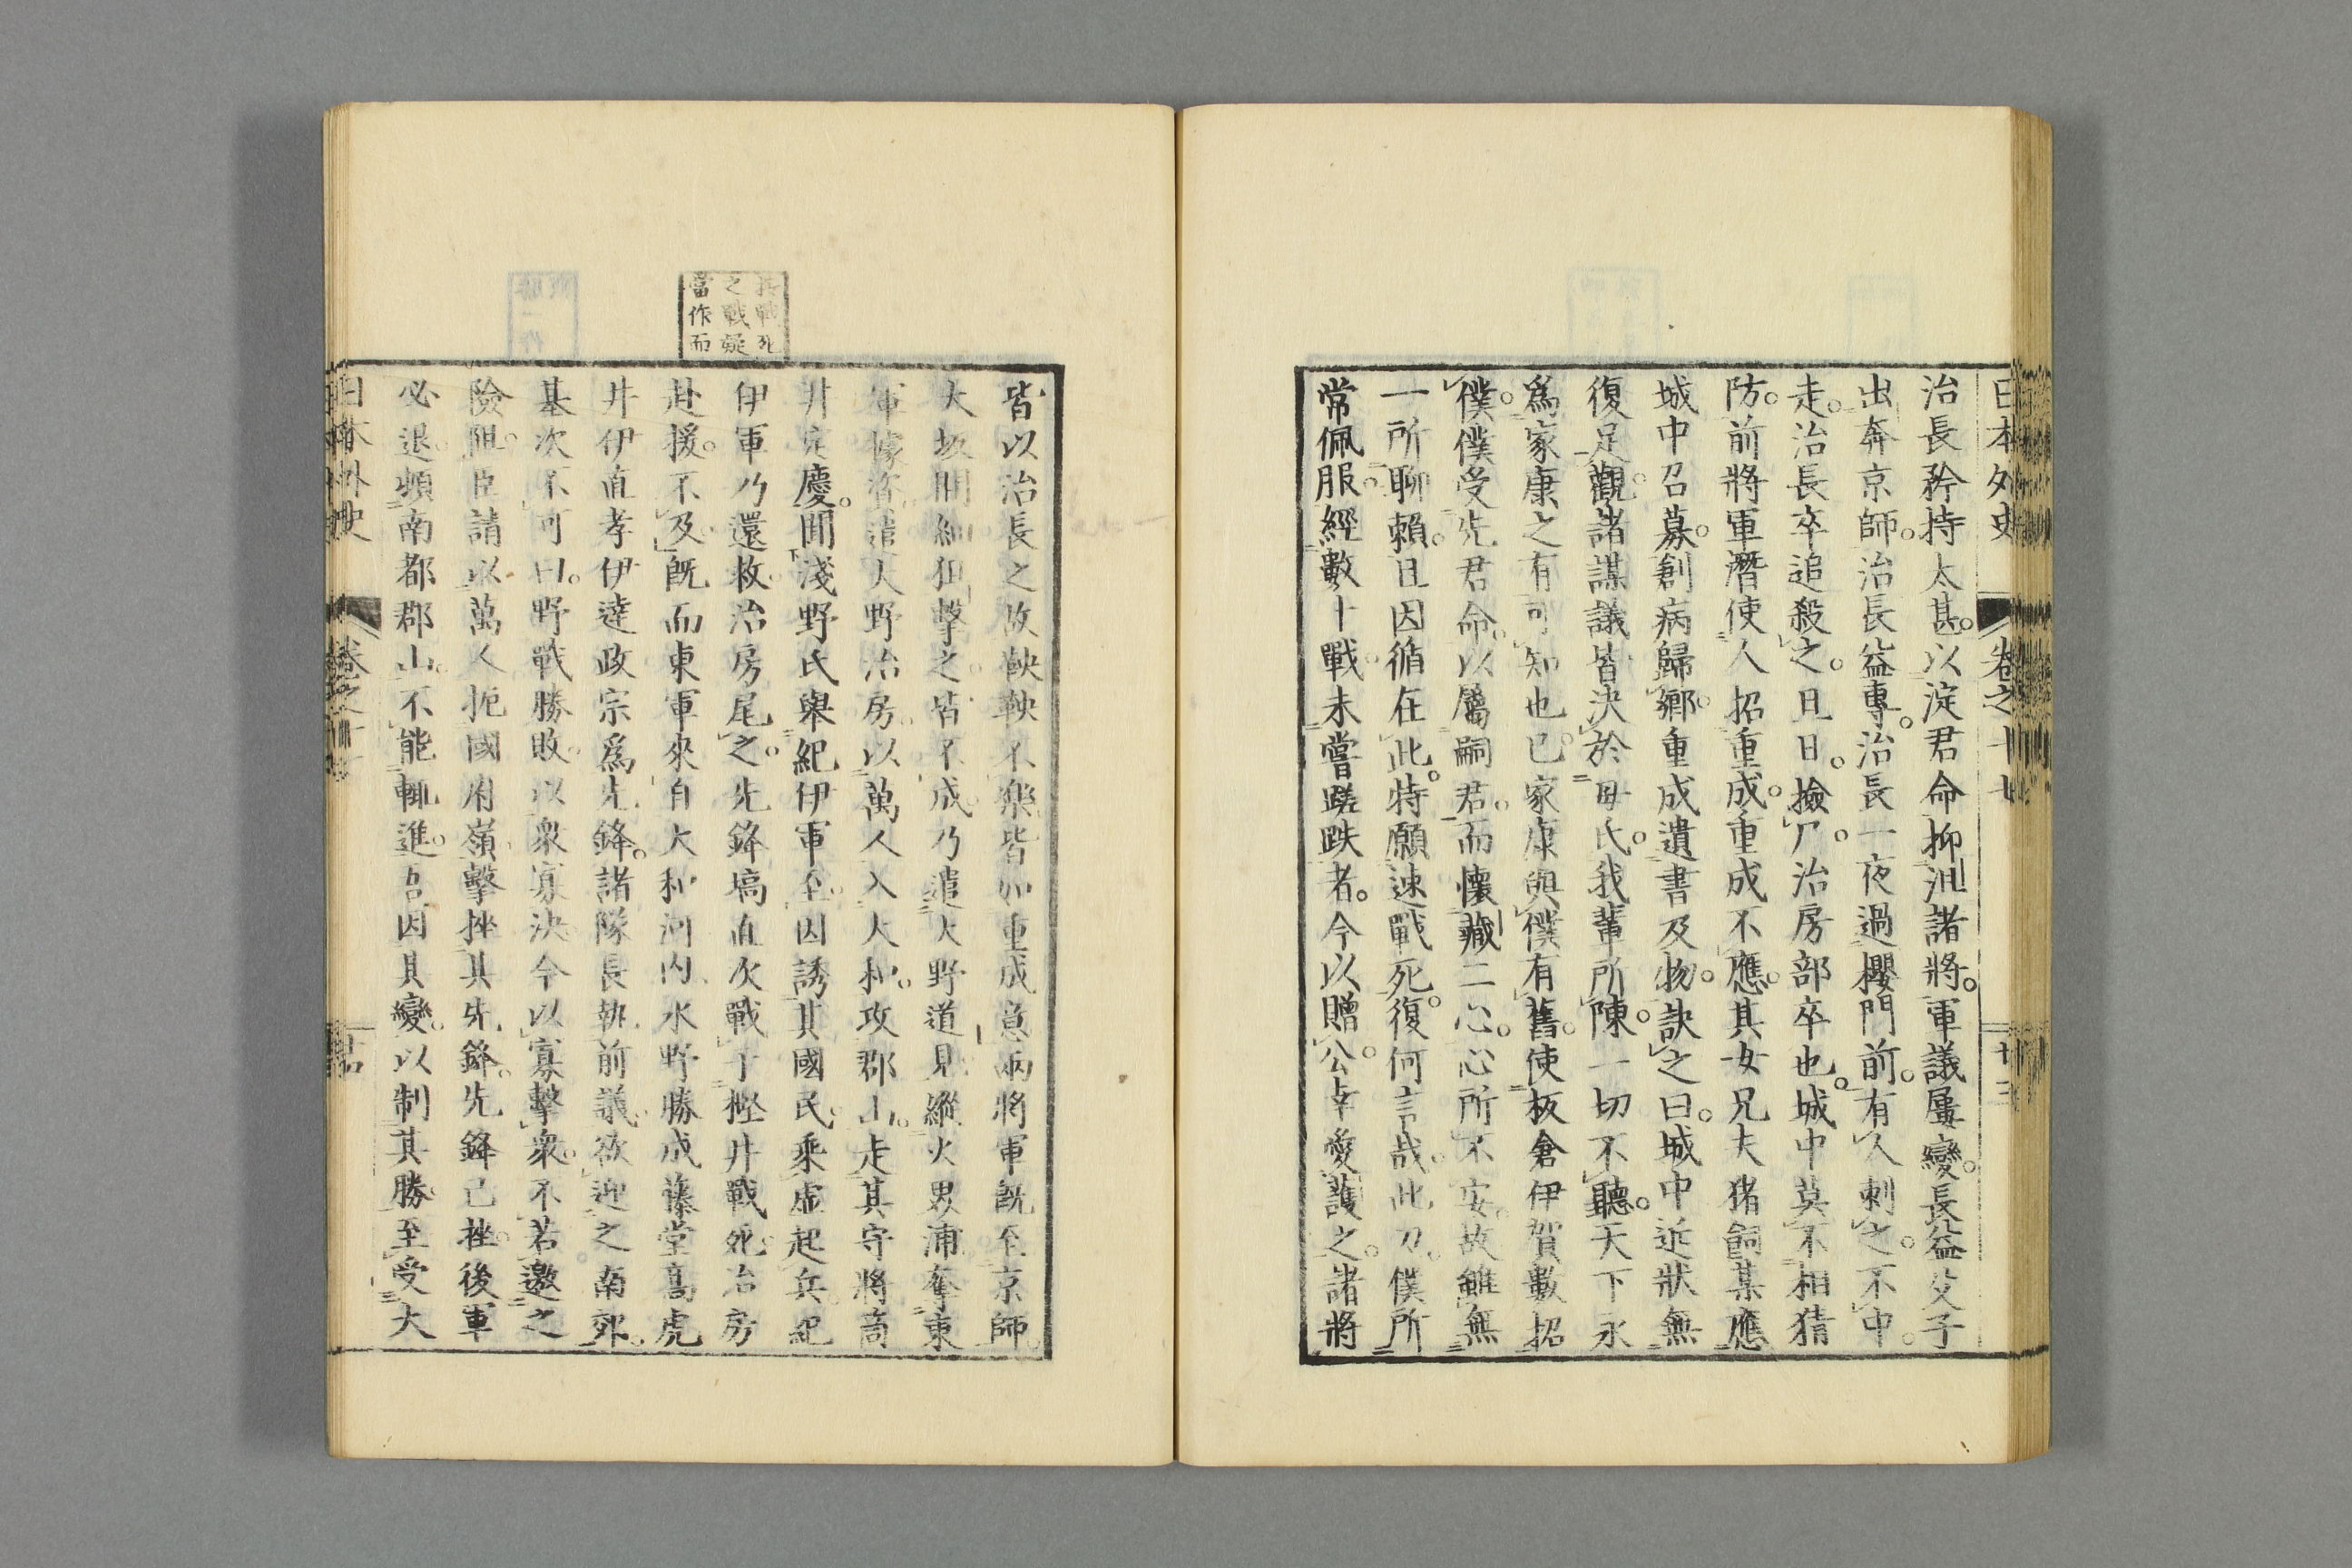 日本外史 卷之十七 廿三
治長矜持太甚。以淀君命抑沮諸將。軍議屢變。長益父子
出奔京師。治長益專。治長一夜過櫻門前。有人刺之。不中
走。治長卒追殺之。且日。撿尸。治房部卒也。城中莫不相猜
防。前將軍潛使人招重成。重成不應。其女兄夫猪飼某應
城中召募。創病歸鄉。重成遺書及物。訣之曰。城中近狀無
復足觀。諸謀議皆決於母氏。我輩所陳。一切不聽。天下永
爲家康之有。可知也已。家康與僕有舊。使板倉伊賀數招
僕。僕受先君命。以屬嗣君。而懷藏二心。心所不安。故雖無
一所聊賴。且因循在此。特願速戰死。復何言哉。此刀。僕所
常佩服。經數十戰。未嘗蹉跌者。今以贈公。幸愛護之。諸將
皆以治長之故怏怏不樂。皆如重成意。兩將軍既至京師。
大坂間細狙擊之。皆不成。乃遣大野道見縱火界浦奪東
軍據。遣大野治房。以萬人入大和。攻郡山。走其守將筒
井定慶。聞淺野氏舉紀伊軍至。因誘其國民。乘虛起兵。紀
伊軍乃還救。治房尾之。先鋒塙直次戰于樫井戰死。治房
赴援。不及。既而東軍來自大和河內。水野勝成藤堂高虎
井伊直孝伊達政宗爲先鋒。諸隊長執前議。欲迎之南郊。
基次不可曰。野戰勝敗。以衆寡決。今以寡擊衆。不若邀之
險阻。臣請以萬人扼國府嶺。擊挫其先鋒。先鋒已挫。後軍
必退頓南都郡山。不能輒進。吾因其變。以制其勝。至受大
日本外史 卷之十七 廿四
其戰死
之戰疑
當作而